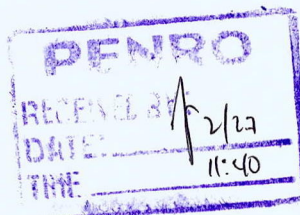 PENRO
RECEIVED BY:
DATE: 2/27
TIME 11:40